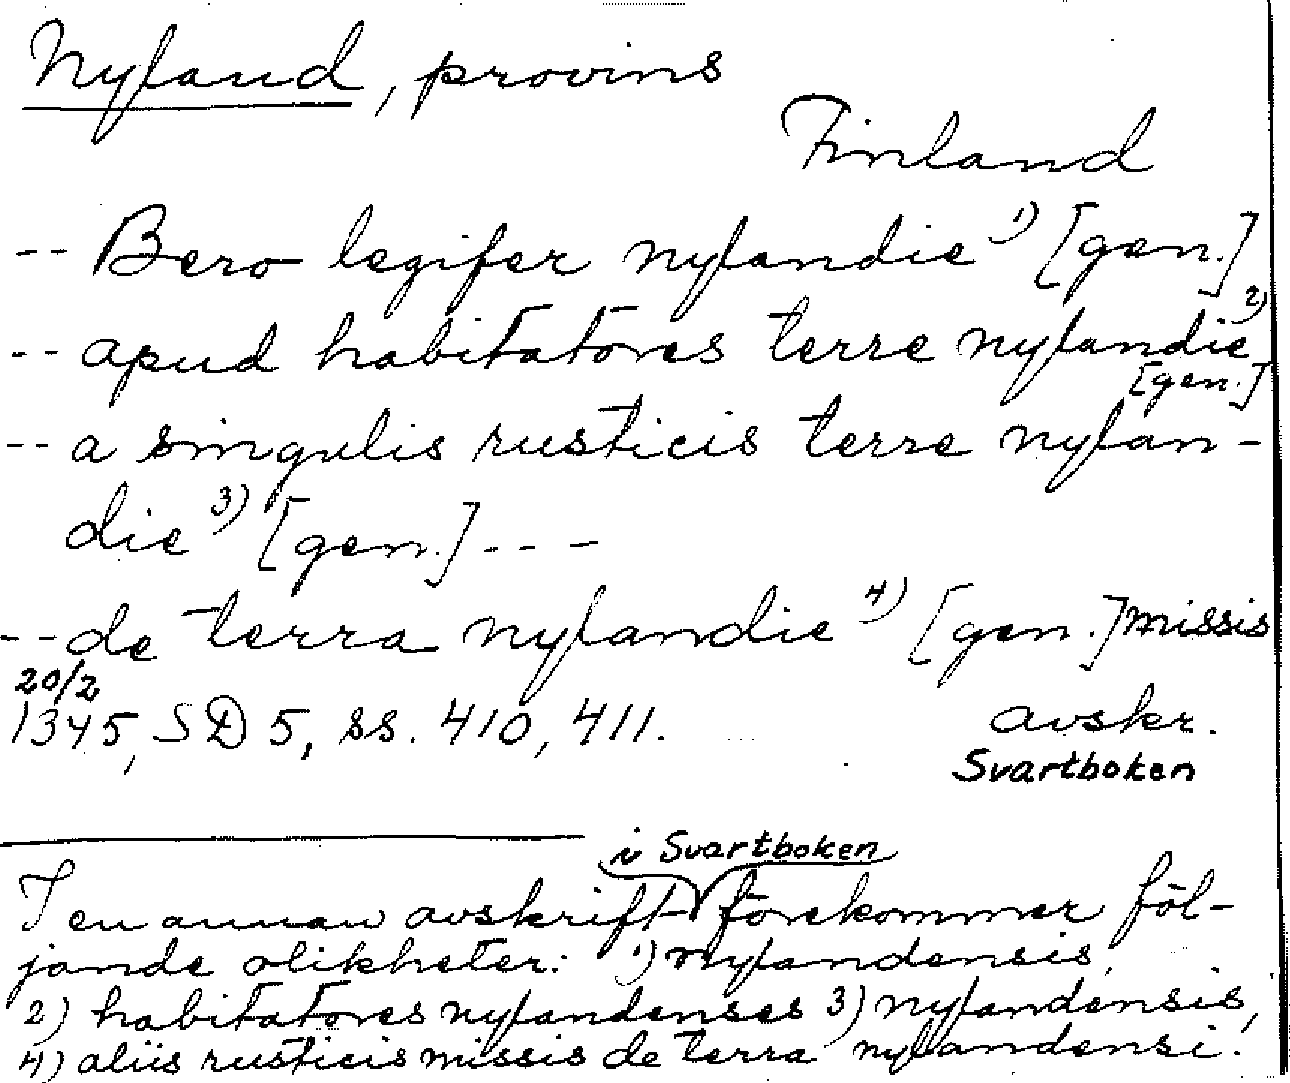 Nyland, provins
Finland
-- Bero legifer nylandie 1) [gen.]
-- apud habitatores terre nylandie 2)
[gen.]
-- a singulis rusticis terre nylan-
die 3) [gen.] - - -
-- de terra nylandie 4) [gen.] missis
20/2
1345, SD 5, ss. 410, 411. avskr.
Svartboken
i Svartboken
I en annan avskrift förekommer föl-
jande olikheter: 1) nylandensis,
2) habitatores nylandenses 3) nylandensis,
4) aliis rusticis missis de terra nylandensi.